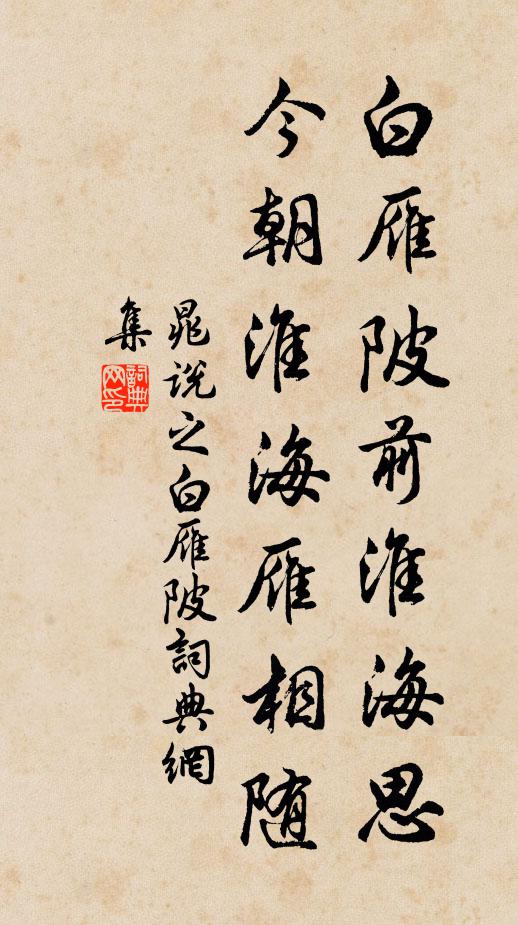 白雁陂前淮海思
今朝淮海雁相随
晁说之白雁陂詞典網
集
詞典網印